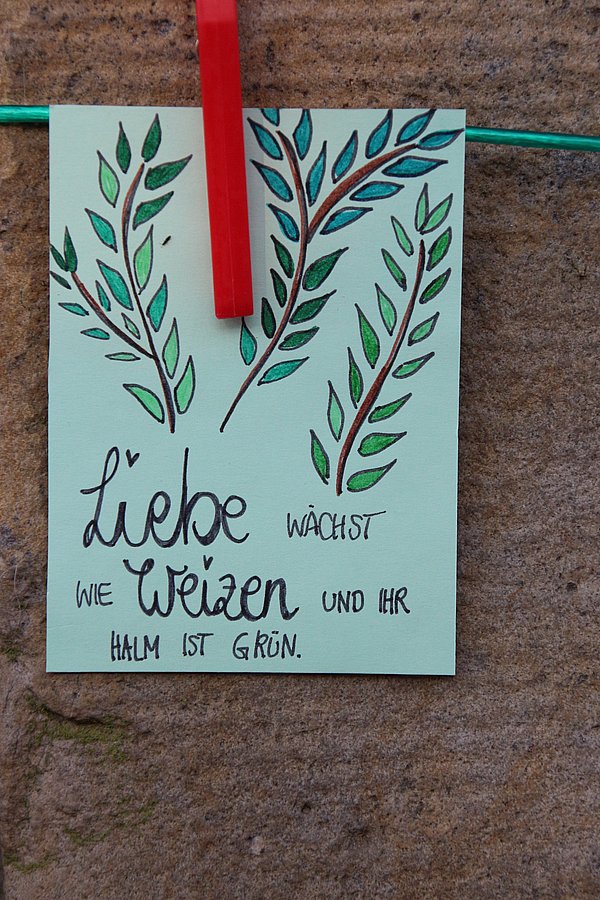 Liebe WÄCHST
WIE Weizen UND IHR
HALM IST GRÜN.